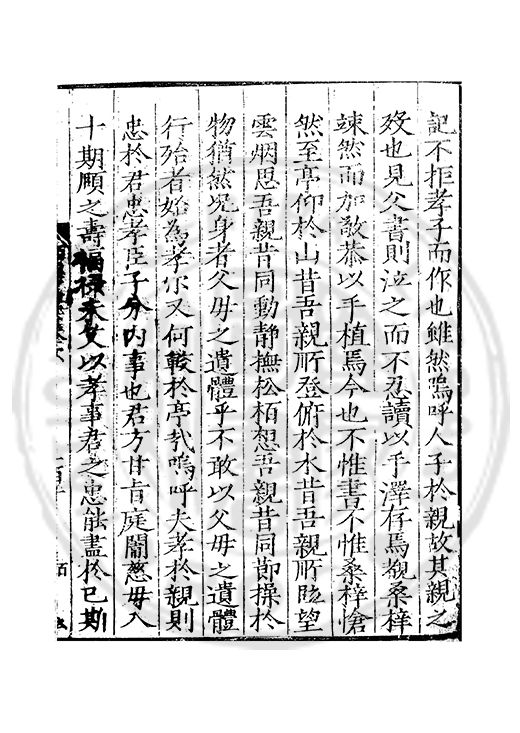 記不拒孝子而作也雖然嗚呼人子於親故其親之
歿也見父書則泣之而不忍讀以手澤存焉覩桑梓
竦然而加敬恭以手植焉今也不惟書不惟桑梓愴
然至亭仰於山昔吾親所登俯於水昔吾親所眺望
雲烟思吾親昔同動靜撫松栢想吾親昔同節操於
物猶然况身者父母之遺體乎不敢以父母之遺體
行殆者始為孝尔又何較於亭哉嗚呼夫孝於親則
忠於君忠孝臣子分内事也君方甘旨庭闈慈母入
十期頤之壽福祿未艾以孝事君之忠能盡於已斯